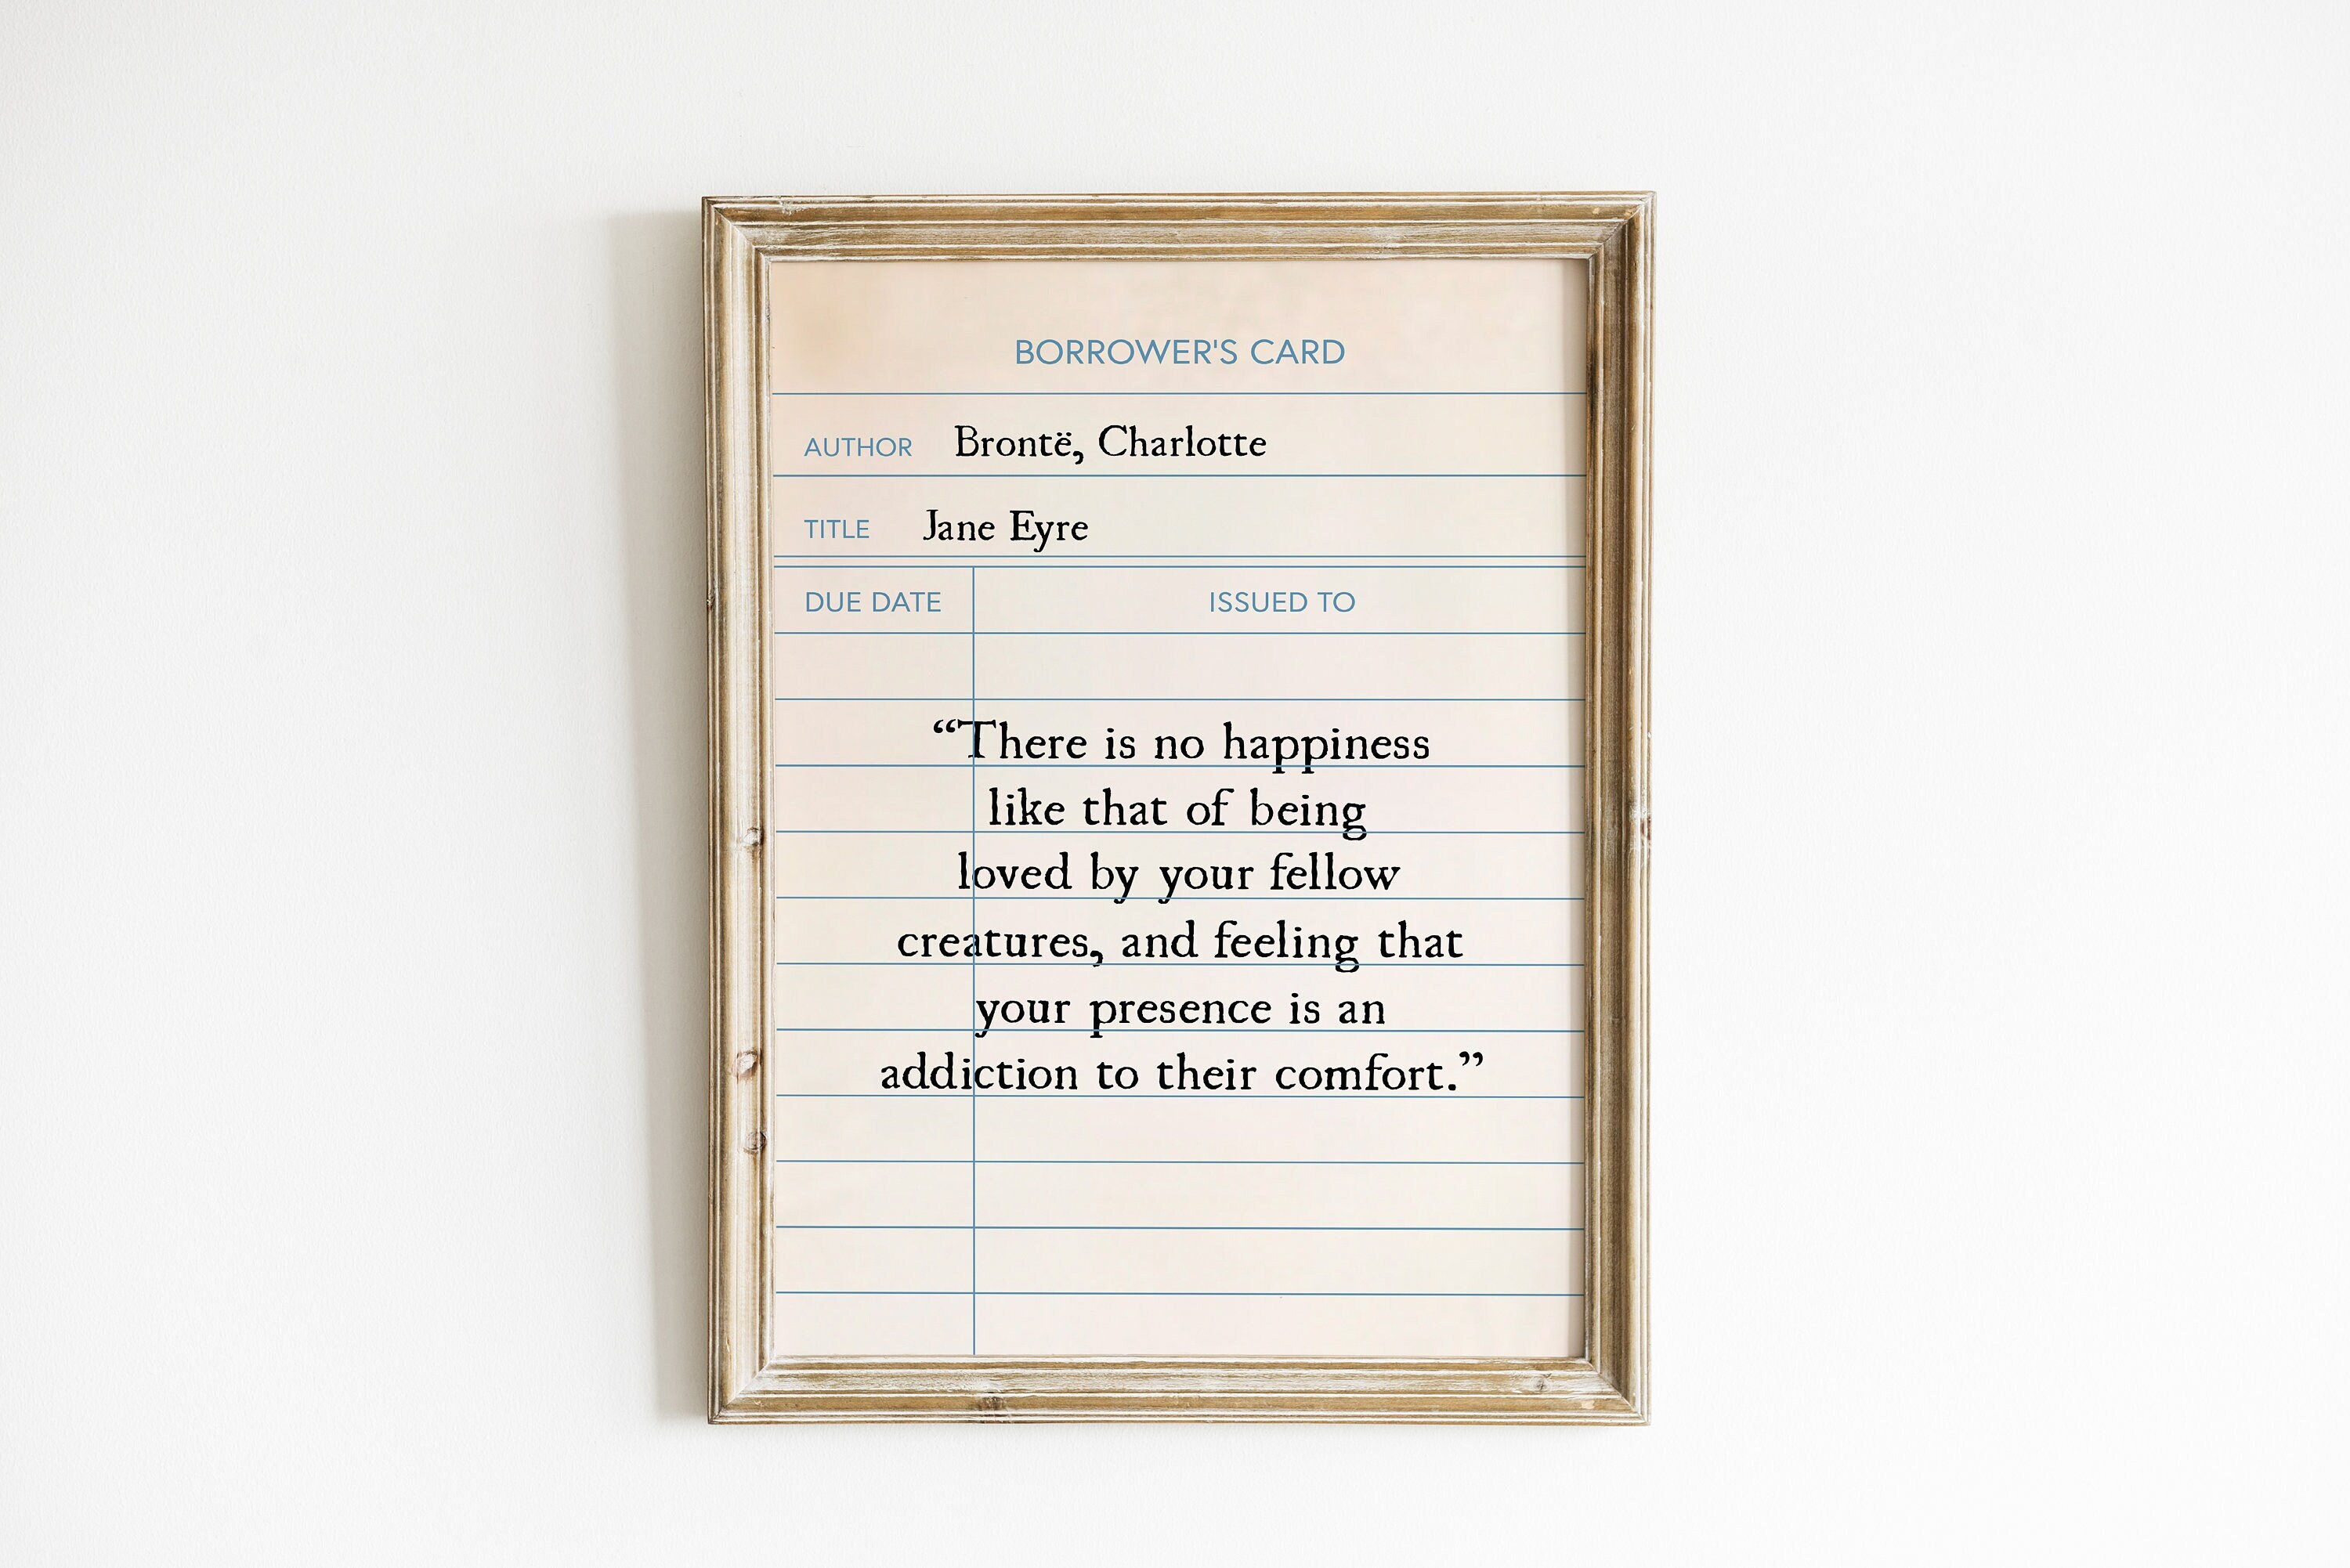 BORROWER'S CARD
AUTHOR Brontë, Charlotte
TITLE Jane Eyre
DUE DATE ISSUED TO
“There is no happiness
like that of being
loved by your fellow
creatures, and feeling that
your presence is an
addiction to their comfort.”